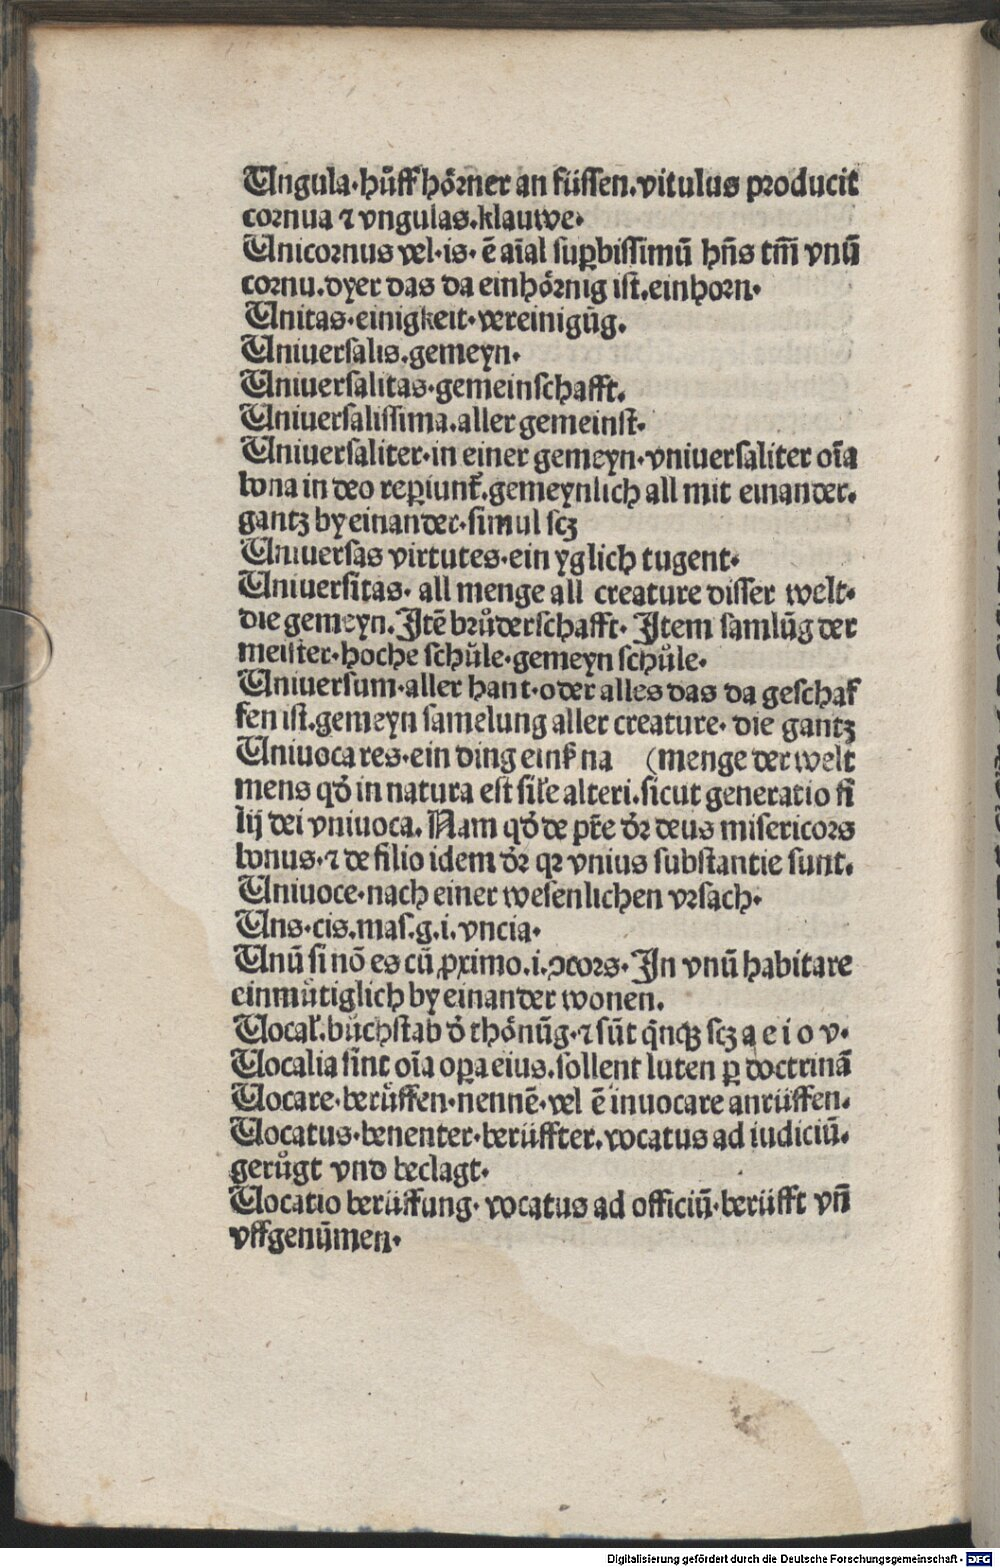 Ungula·hůff hörner an füssen.vitulus producit
cornua ⁊ vngulas.klauwe·
Unicornus vel·is· ē aīal suꝑbissimū hn̄s tm̄ vnū
cornu.dyer das da einhörnig ist.einhorn·
Unitas·einigkeit·vereinigūg.
Uniuersalis.gemeyn·
Uniuersalitas·gemeinschafft.
Uniuersalissima.aller gemeinst·
Uniuersaliter·in einer gemeyn·vniuersaliter oīa
bona in deo reꝑiunt̄.gemeynlich all mit einander.
gantz by einander·simul scꝫ
Uniuersas virtutes·ein yglich tugent·
Uniuersitas· all menge all creature disser welt·
die gemeyn.Itē brůderschafft· Item samlūg der
meister·hoche schůle·gemeyn schůle·
Uniuersum·aller hant·oder alles das da geschaf
fen ist.gemeyn samelung aller creature· die gantz
Uniuoca res·ein ding einr̄ na (menge der welt
mens qď in natura est sil̄e alteri.sicut generatio fi
lij dei vniuoca. Nam qď de pr̄e dr̄ deus misericors
bonus·⁊ de filio idem dr̄ qꝛ vnius substantie sunt.
Uniuoce·nach einer wesenlichen vrsach·
Uns·cis.mas.g.i.vncia·
Unū si nō es cū ꝓximo.i.ꝯcors· In vnū habitare
einmůtiglich by einander wonen.
Uocal̄.bůchstab ď thönūg·⁊ sūt q̄nqꝫ scꝫ a e i o v·
Uocalia sint oīa oꝑa eius.sollent luten ꝑ doctrinā
Uocare·berůffen·nennē·vel ē inuocare anrüffen.
Uocatus·benenter·berüffter.vocatus ad iudiciū.
gerůgt vnd beclagt·
Uocatio berüffung· vocatus ad officiū·berüfft vn̄
vffgenūmen·
Digitalisierung gefördert durch die Deutsche Forschungsgemeinschaft - DFG